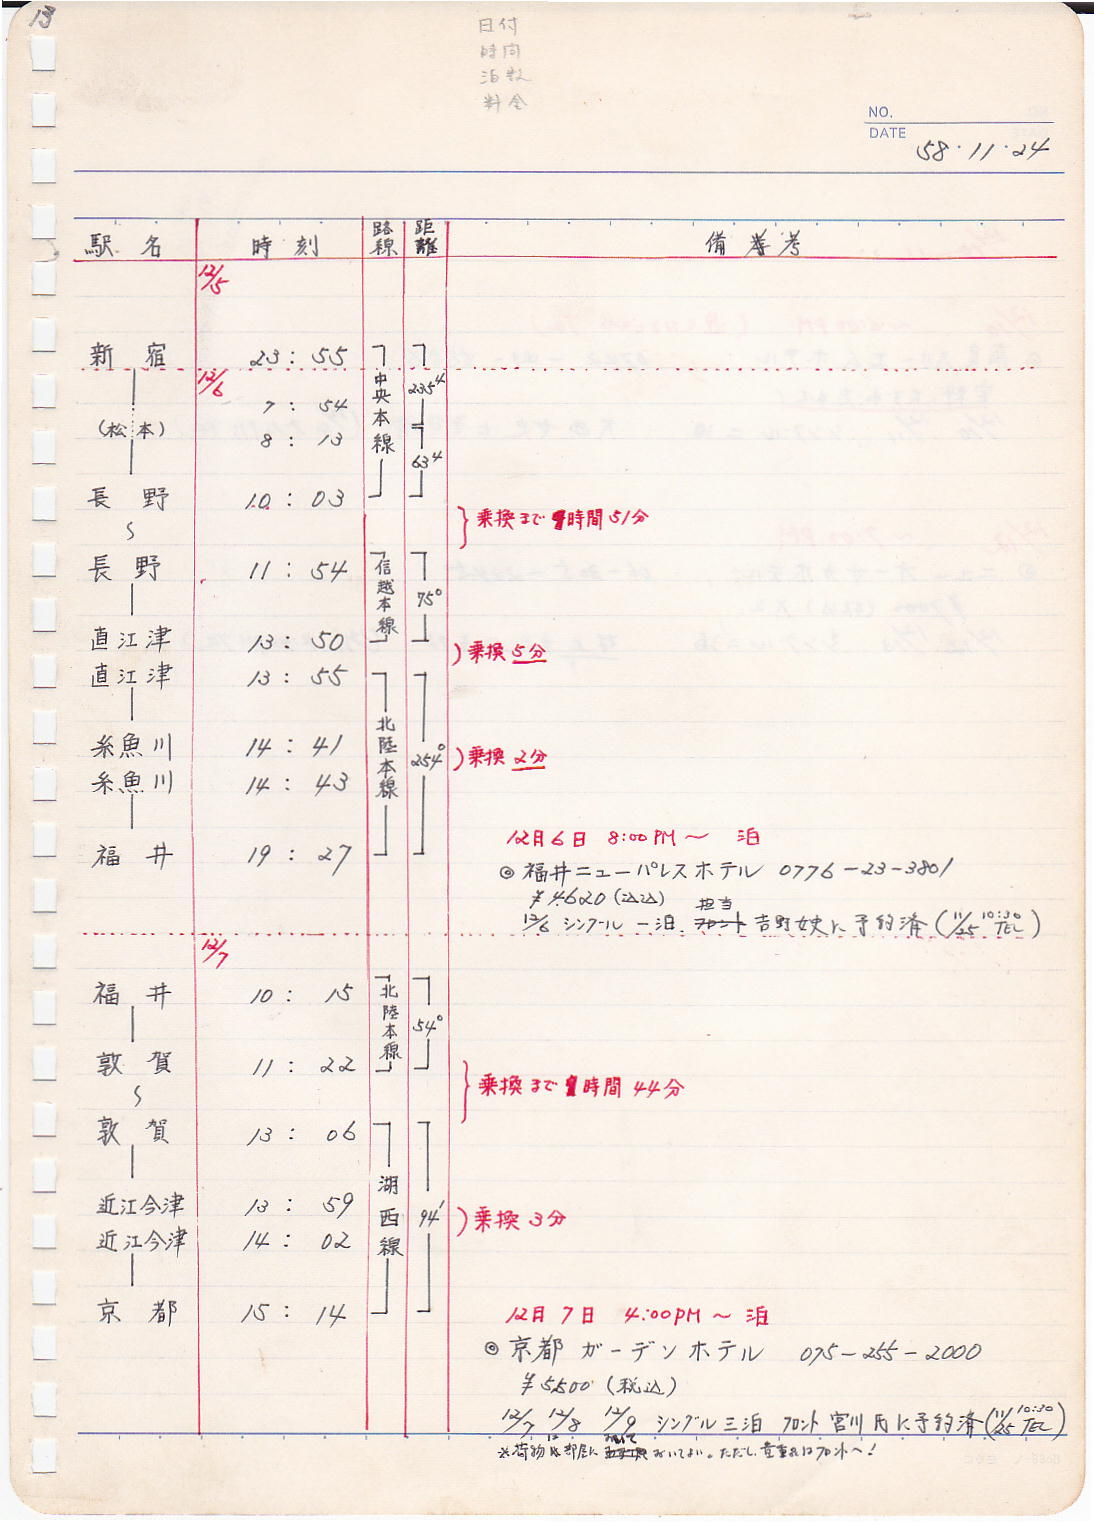 13
日付
時間
泊数
料金
NO.
DATE 58・11・24
駅名 時刻 路線 距離 備考
12/5
新宿 23:55
12/6
7:54 中央本線 235⁴
(松本) 8:13
63⁴
長野 10:03
乗換まで1時間51分
長野 11:54 信越本線
75⁰
直江津 13:50
乗換5分
直江津 13:55
北陸本線
糸魚川 14:41
254⁰ 乗換2分
糸魚川 14:43
12月6日 8:00PM〜 泊
福井 19:27
◎福井ニューパレスホテル 0776-23-3801
¥4620(込込)
担当
12/6 シングル一泊 フロント 吉野女史に予約済(11/25 10:30 TEL)
12/7
福井 10:15 北陸本線
54⁰
敦賀 11:22
乗換まで1時間44分
敦賀 13:06
湖西線
近江今津 13:59
94¹ 乗換3分
近江今津 14:02
京都 15:14
12月7日 4:00PM〜泊
◎京都ガーデンホテル 075-255-2000
¥5,500(税込)
12/7 12/8 12/9 シングル三泊 フロント宮川氏に予約済(11/25 10:30 TEL)
※荷物は部屋に おいてよい。ただし貴重品はフロントへ!